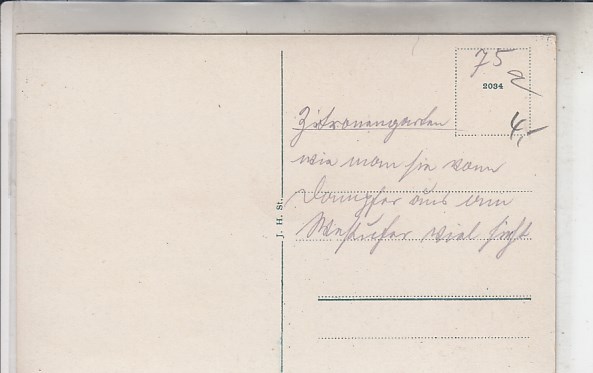 75
2034
4,-
Zitronengarten
wie man sie vom
Dampfer aus am
Westufer viel sieht
J. H. St.